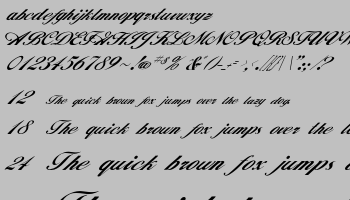 abcdefghijklmnopqrstuvwxyz
ABCDEFGHIJKLMNOPQRSTUVW
0123456789
12 The quick brown fox jumps over the lazy dog.
18 The quick brown fox jumps over the
24 The quick brown fox jumps